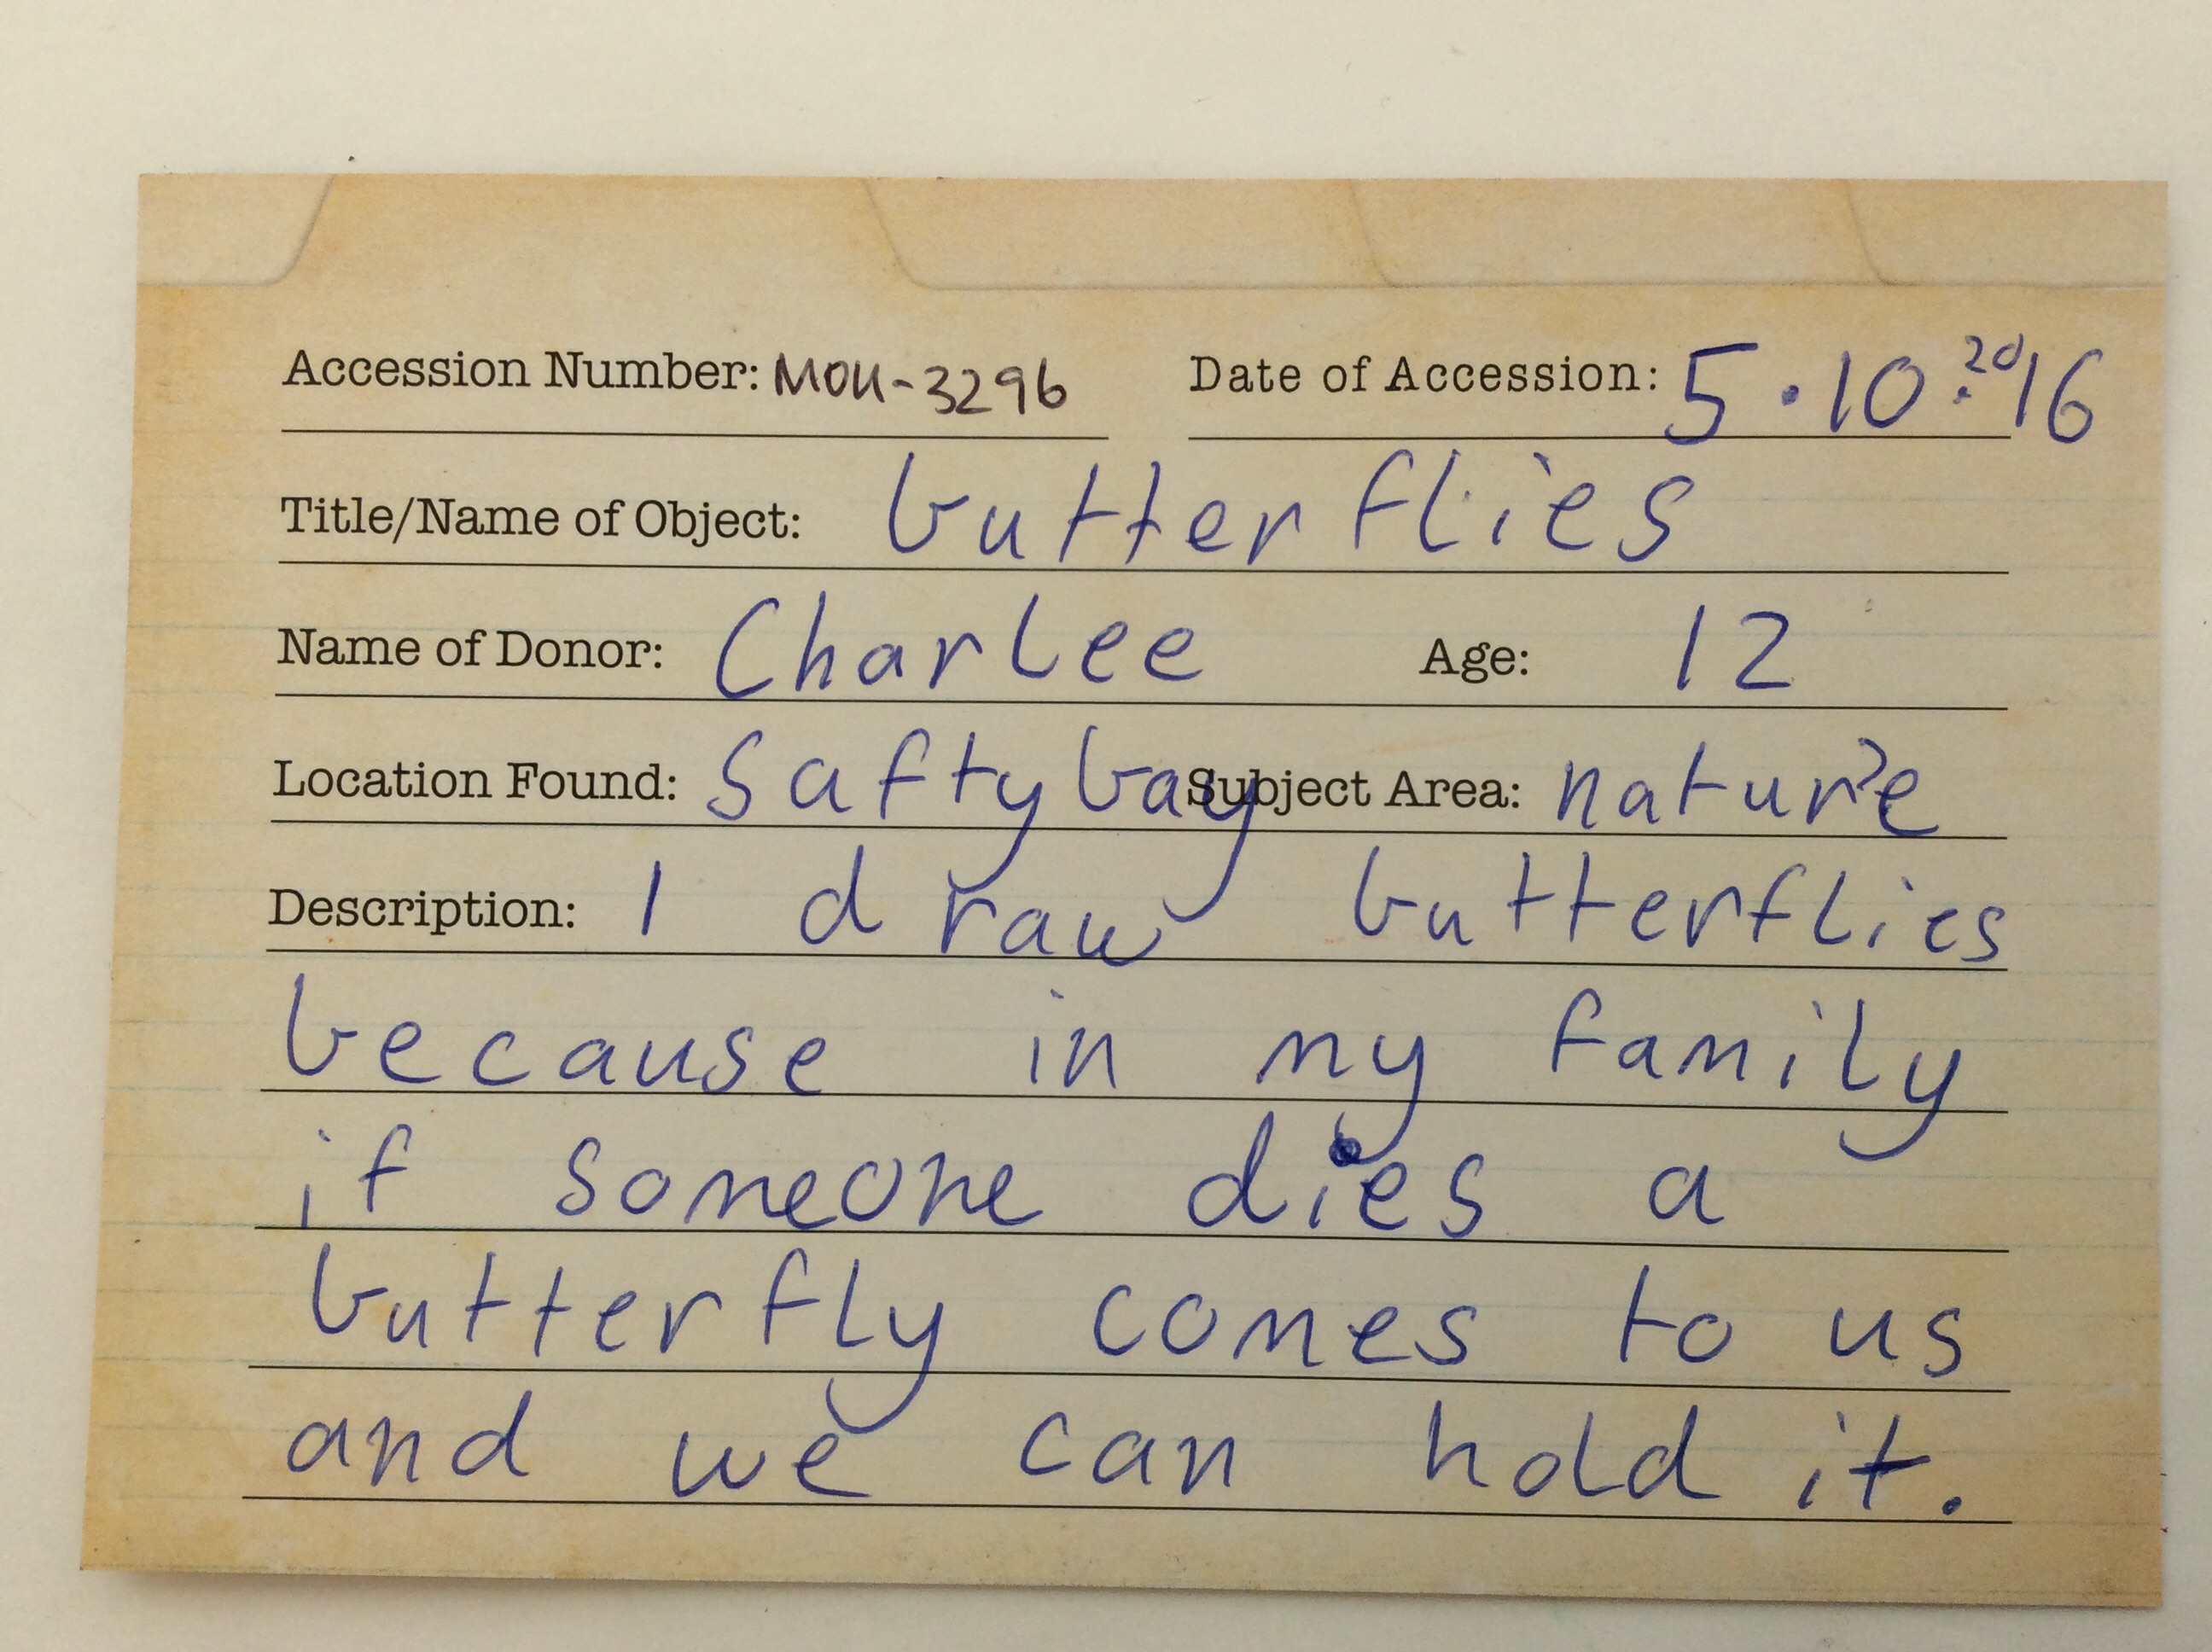 Accession Number: MOU-3296 Date of Accession: 5.10.2016
Title/Name of Object: butterflies
Name of Donor: Charlee Age: 12
Location Found: Saftybay Subject Area: nature
Description: I draw butterflies
because in my family
if someone dies a
butterfly comes to us
and we can hold it.